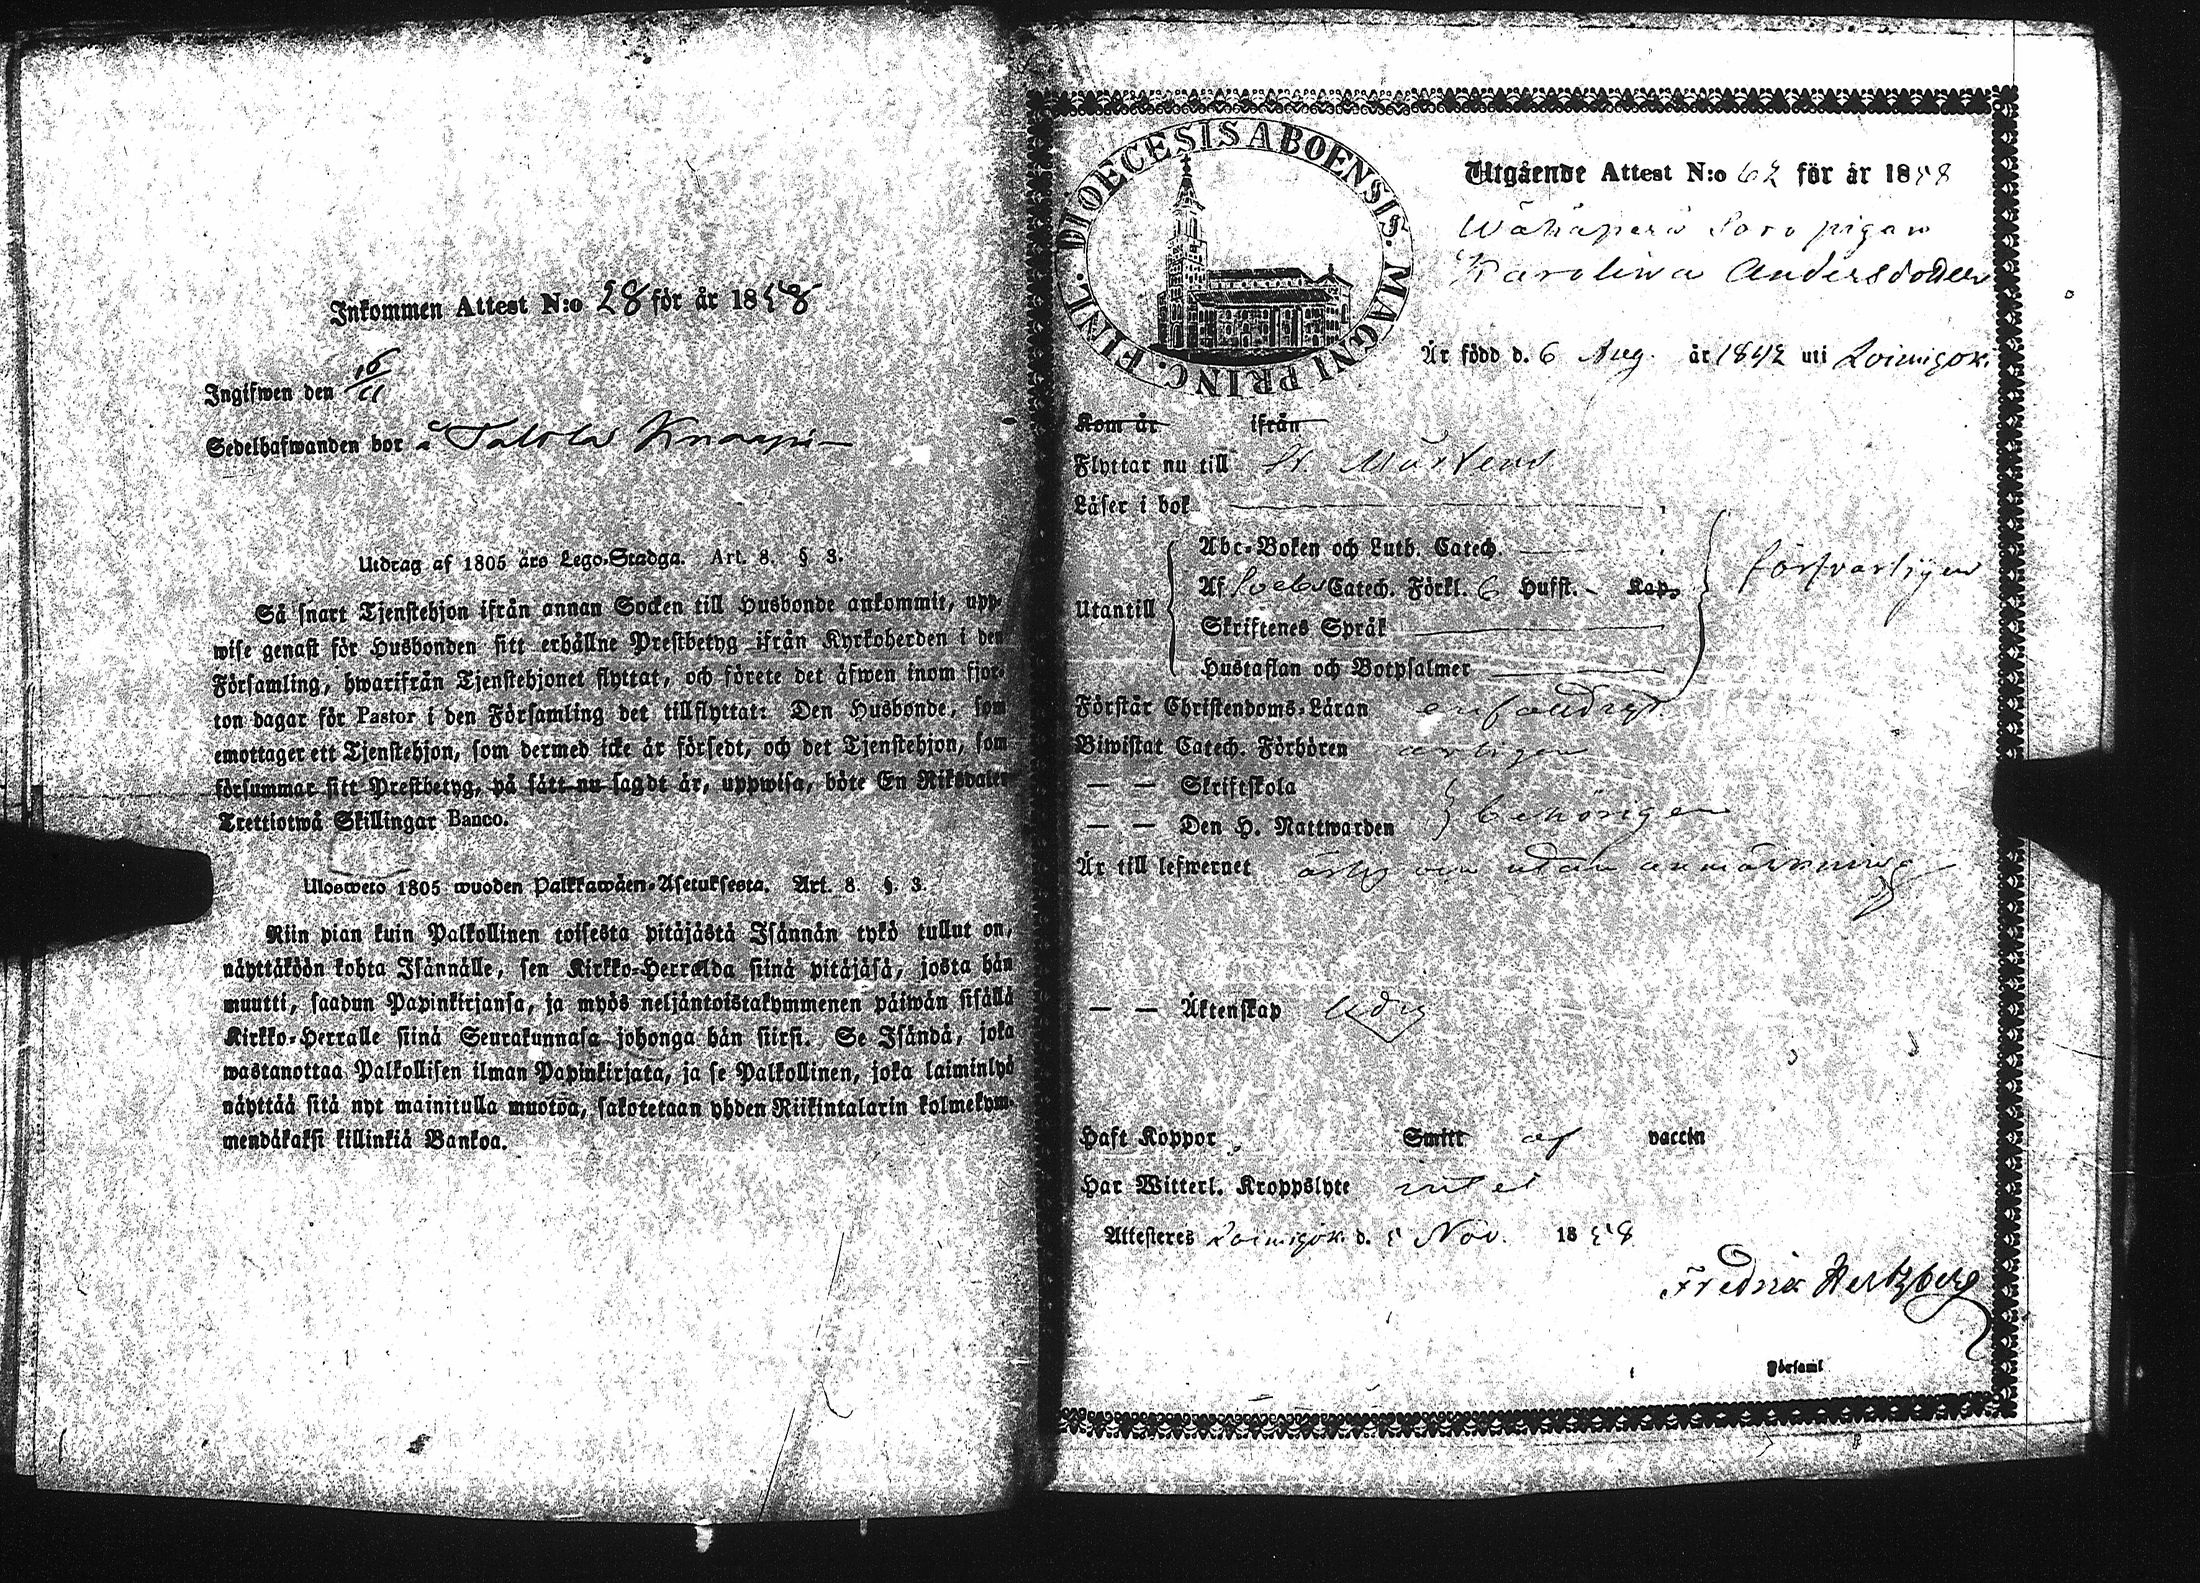 Inkommen Attest N:o 28 för år 1858
Ingifwen den 16/11
Sedelhafwanden bor å Talola Knaapi
Utdrag af 1805 års Lego-Stadga. Art. 8. § 3.
Så snart Tjenstehjon ifrån annan Socken till Husbonde ankommit, upp-
wise genast för Husbonden sitt erhållne Prestbetyg ifrån Kyrkoherden i den
Församling, hwarifrån Tjenstehjonet flyttat, och förete det äfwen inom fjor-
ton dagar för Pastor i den Församling det tillflyttat: Den Husbonde, som
emottager ett Tjenstehjon, som dermed icke är försedt, och det Tjenstehjon, som
försummar sitt Prestbetyg, på sätt nu sagdt är, uppwisa, böte En Riksdaler
Trettiotwå Skillingar Banco.
Ulosweto 1805 wuoden Palkkawäen-Asetuksesta. Art. 8. §. 3.
Niin pian kuin Palkollinen toisesta pitäjästä Isännän tykö tullut on,
näyttäköön kohta Isännälle, sen Kirkko-Herralda siinä pitäjäsä, josta hän
muutti, saadun Papinkirjansa, ja myös neljäntoistakymmenen päiwän sisällä
Kirkko-Herralle siinä Seurakunnasa johonga hän siirsi. Se Isändä, joka
wastanottaa Palkollisen ilman Papinkirjata, ja se Palkollinen, joka laiminlyö
näyttää sitä nyt mainitulla muotoa, sakotetaan yhden Riikintalarin kolmekym-
mendäkaksi killinkiä Bankoa.
FINL. DIOECESIS ABOENSIS. MAGNI PRINC.
Utgående Attest N:o 62 för år 1858
Wähäperä pigan
Karolina Andersdotter
Är född d. 6 Aug. år 1842 uti Loimijok.
Kom år ifrån
Flyttar nu till St. Mårtens
Läser i bok
Utantill
Abc-Boken och Luth. Catech.
Af Catech. Förkl. 6 Hufst. - Kap.
Skriftenes Språk
Hustaflan och Botpsalmer
försvarligen
Förstår Christendoms-Läran enfaldigt
Biwistat Catech. Förhören årligen
— — Skriftskola
— — Den H. Nattwarden
behörigen
Är till lefwernet ärlig och utan anmärkning
— — Äktenskap ledig
Haft Koppor Smitt af vaccin
Har Witterl. Kroppslyte intet
Attesteres Loimijok. d. 5 Nov. 1858
Fredrik Hertzberg
Församl